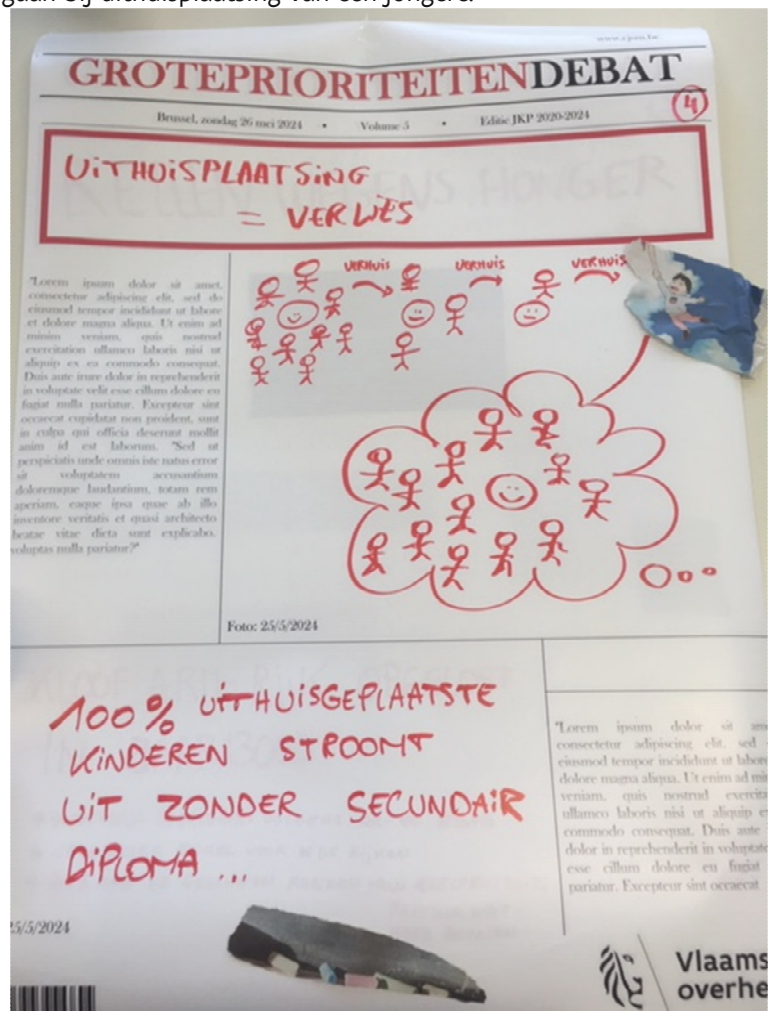 gaan bij uithuisplaatsing van een jongere.
GROTEPRIORITEITENDEBAT
4
Brussel, zondag 26 mei 2024 • Volume 5 • Editie JKP 2020-2024
UITHUISPLAATSING
= VERLIES
"Lorem ipsum dolor sit amet,
consectetur adipiscing elit, sed do
eiusmod tempor incididunt ut labore
et dolore magna aliqua. Ut enim ad
minim veniam, quis nostrud
exercitation ullamco laboris nisi ut
aliquip ex ea commodo consequat.
Duis aute irure dolor in reprehenderit
in voluptate velit esse cillum dolore eu
fugiat nulla pariatur. Excepteur sint
occaecat cupidatat non proident, sunt
in culpa qui officia deserunt mollit
anim id est laborum. "Sed ut
perspiciatis unde omnis iste natus error
sit voluptatem accusantium
doloremque laudantium, totam rem
aperiam, eaque ipsa quae ab illo
inventore veritatis et quasi architecto
beatae vitae dicta sunt explicabo.
voluptas nulla pariatur?"
VERHUIS VERHUIS VERHUIS
Foto: 25/5/2024
100% UITHUISGEPLAATSTE
KINDEREN STROOMT
UIT ZONDER SECUNDAIR
DIPLOMA ...
25/5/2024
"Lorem ipsum dolor sit am
consectetur adipiscing elit, sed
eiusmod tempor incididunt ut labor
dolore magna aliqua. Ut enim ad mi
veniam, quis nostrud exercita
ullamco laboris nisi ut aliquip e
commodo consequat. Duis aute
dolor in reprehenderit in voluptat
esse cillum dolore eu fugiat
pariatur. Excepteur sint occaecat
Vlaams
overhe